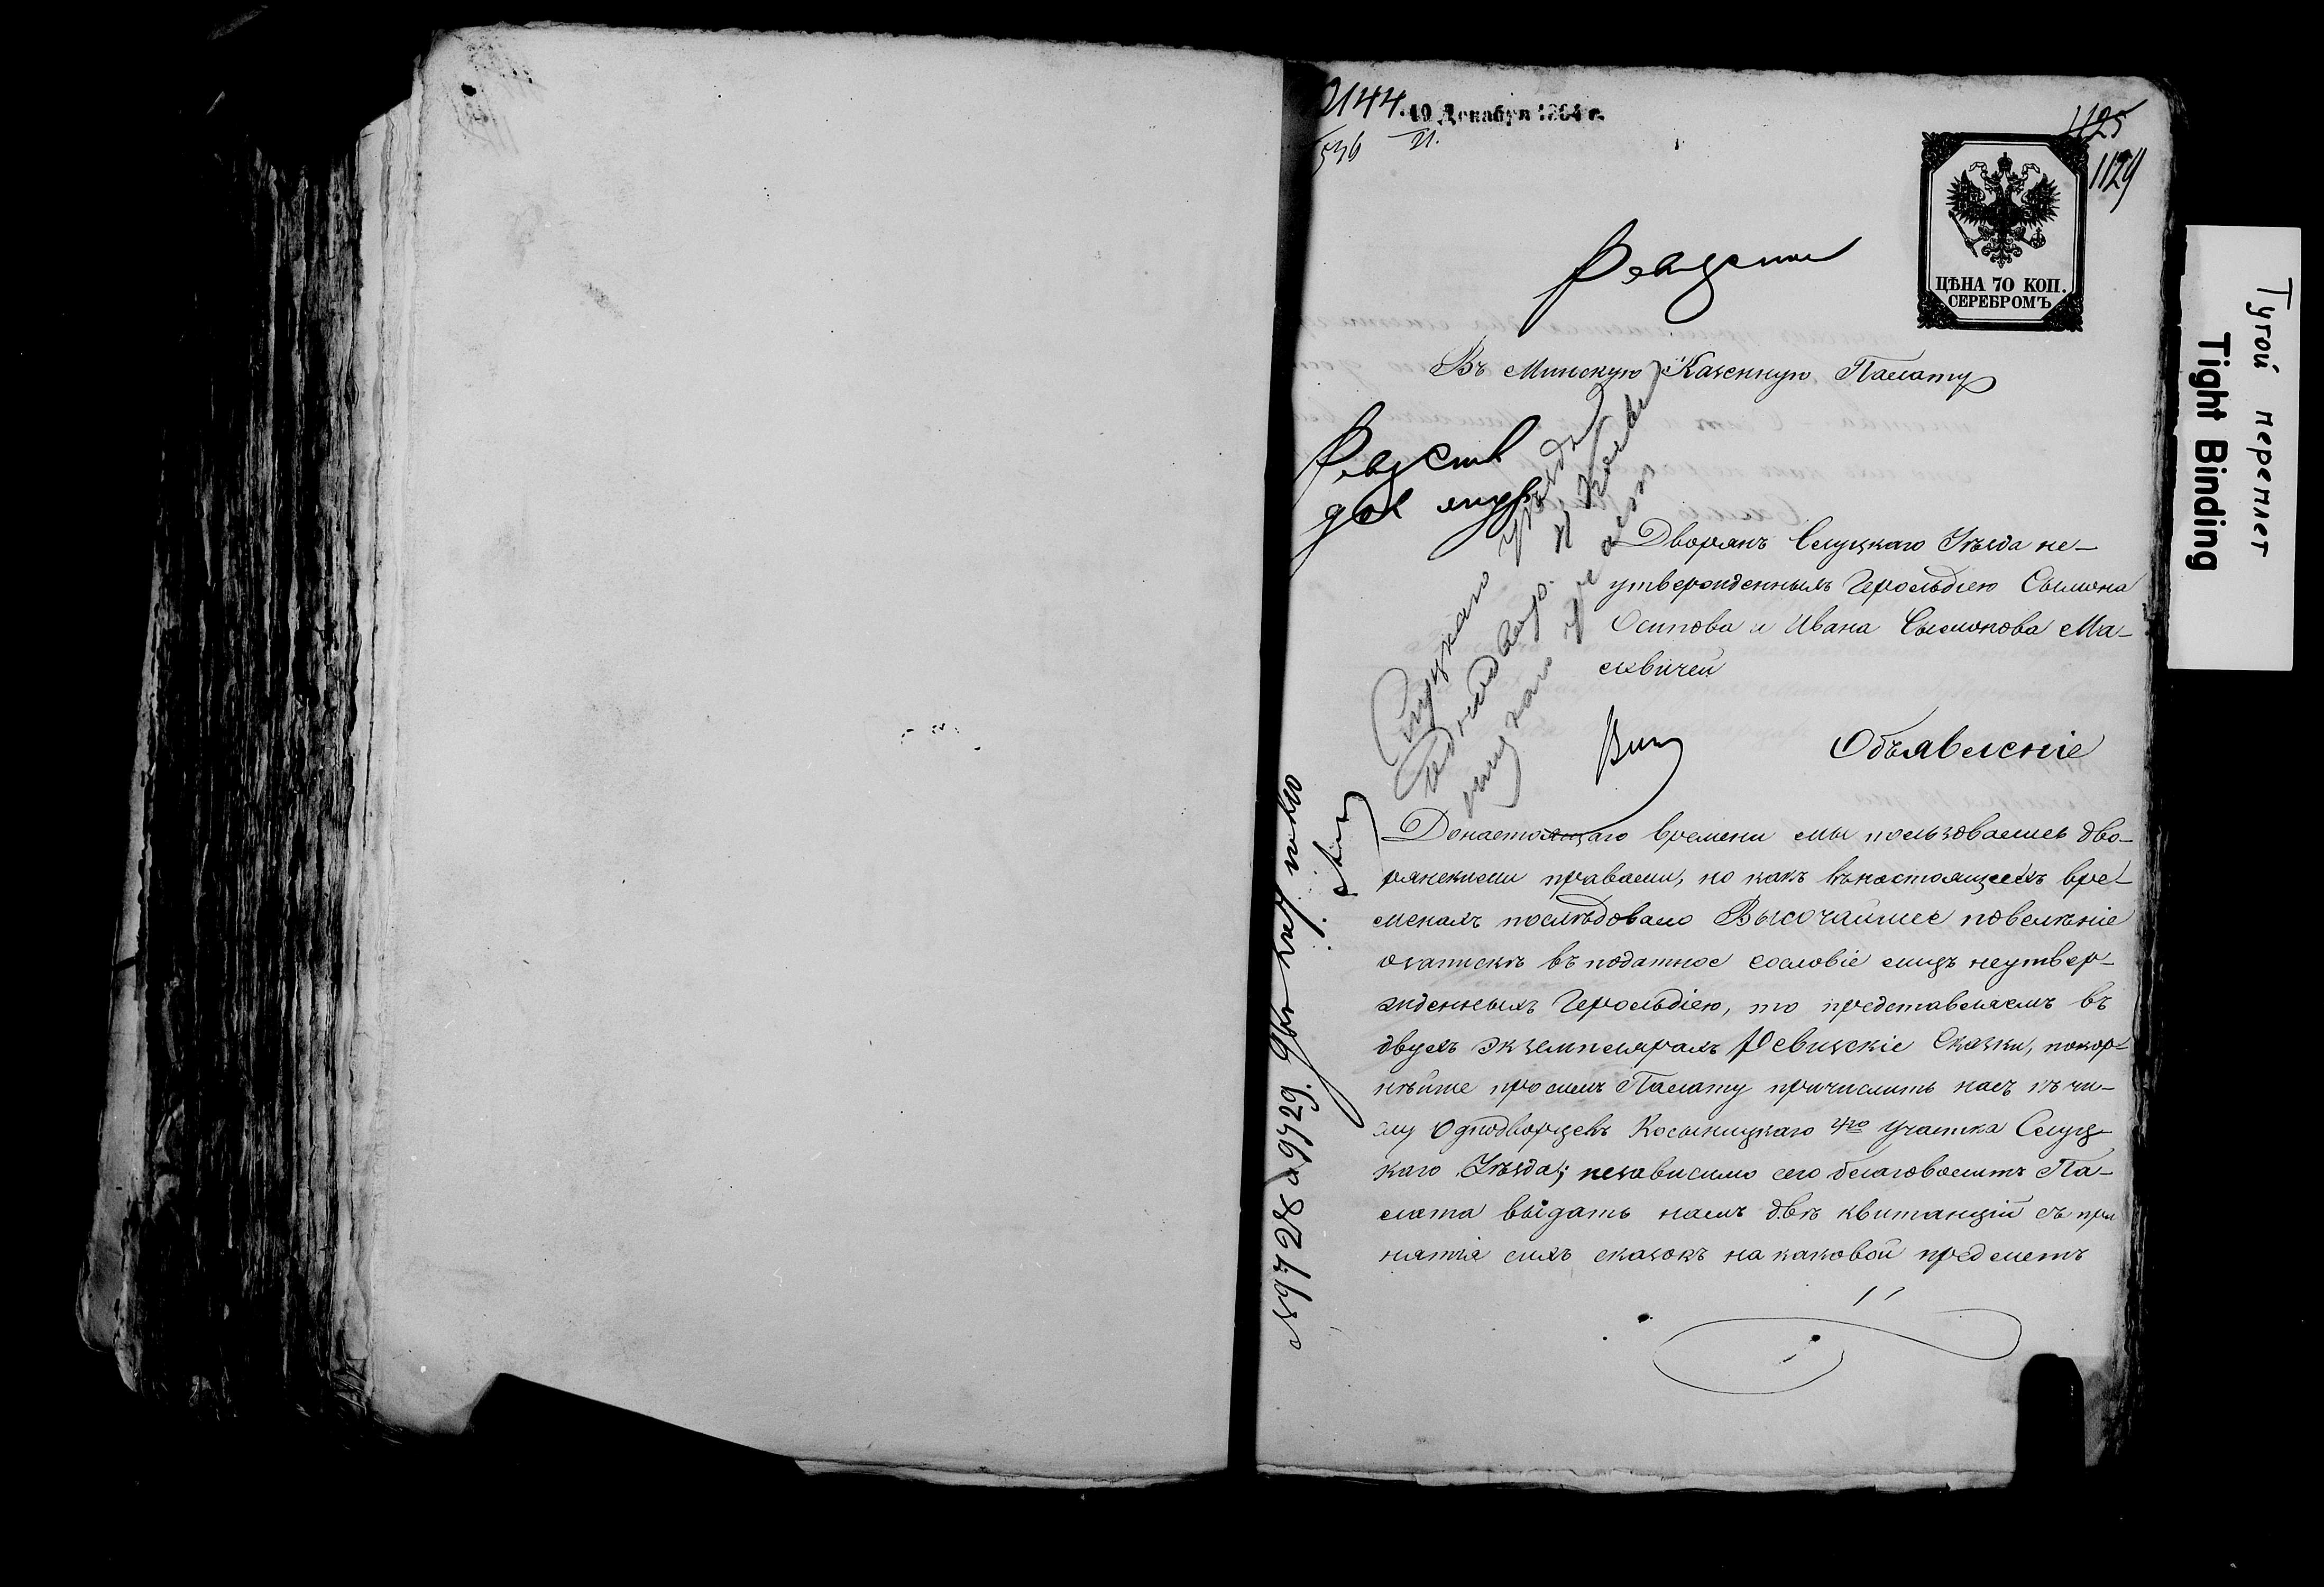 2144
10 Декабря 1864 г.
536
1125
1129
ЦѢНА 70 КОП.
СЕРЕБРОМЪ
Въ Минскую Казенную Палату
Дворянъ Слуцкаго Уѣзда не-
утвержденныхъ Герольдіею Сымона
Осипова и Ивана Сымонова Ма-
сквичей
Объявленіе
Донастоящаго времени мы пользовались дво-
рянскими правами, но какъ внастоящемъ вре-
менахъ послѣдовало Высочайшее повелѣніе
озапискѣ въ податное сословіе лицъ неутвер-
жденныхъ Герольдіею, то представляемъ въ
двухъ экземплярахъ Ревизскіе Сказки, покор-
нѣйше просимъ Палату причислить насъ къ чи-
слу Однодворцевъ 4го участка Слуц-
каго Уѣзда; независимо сего благоволитъ Па-
лата выдать намъ двѣ квитанціи съ при
нятія сихъ сказокъ на каковой предметъ
Слуцкаго уѣзда
№ 9728 и 9729.
Тугой переплет
Tight Binding